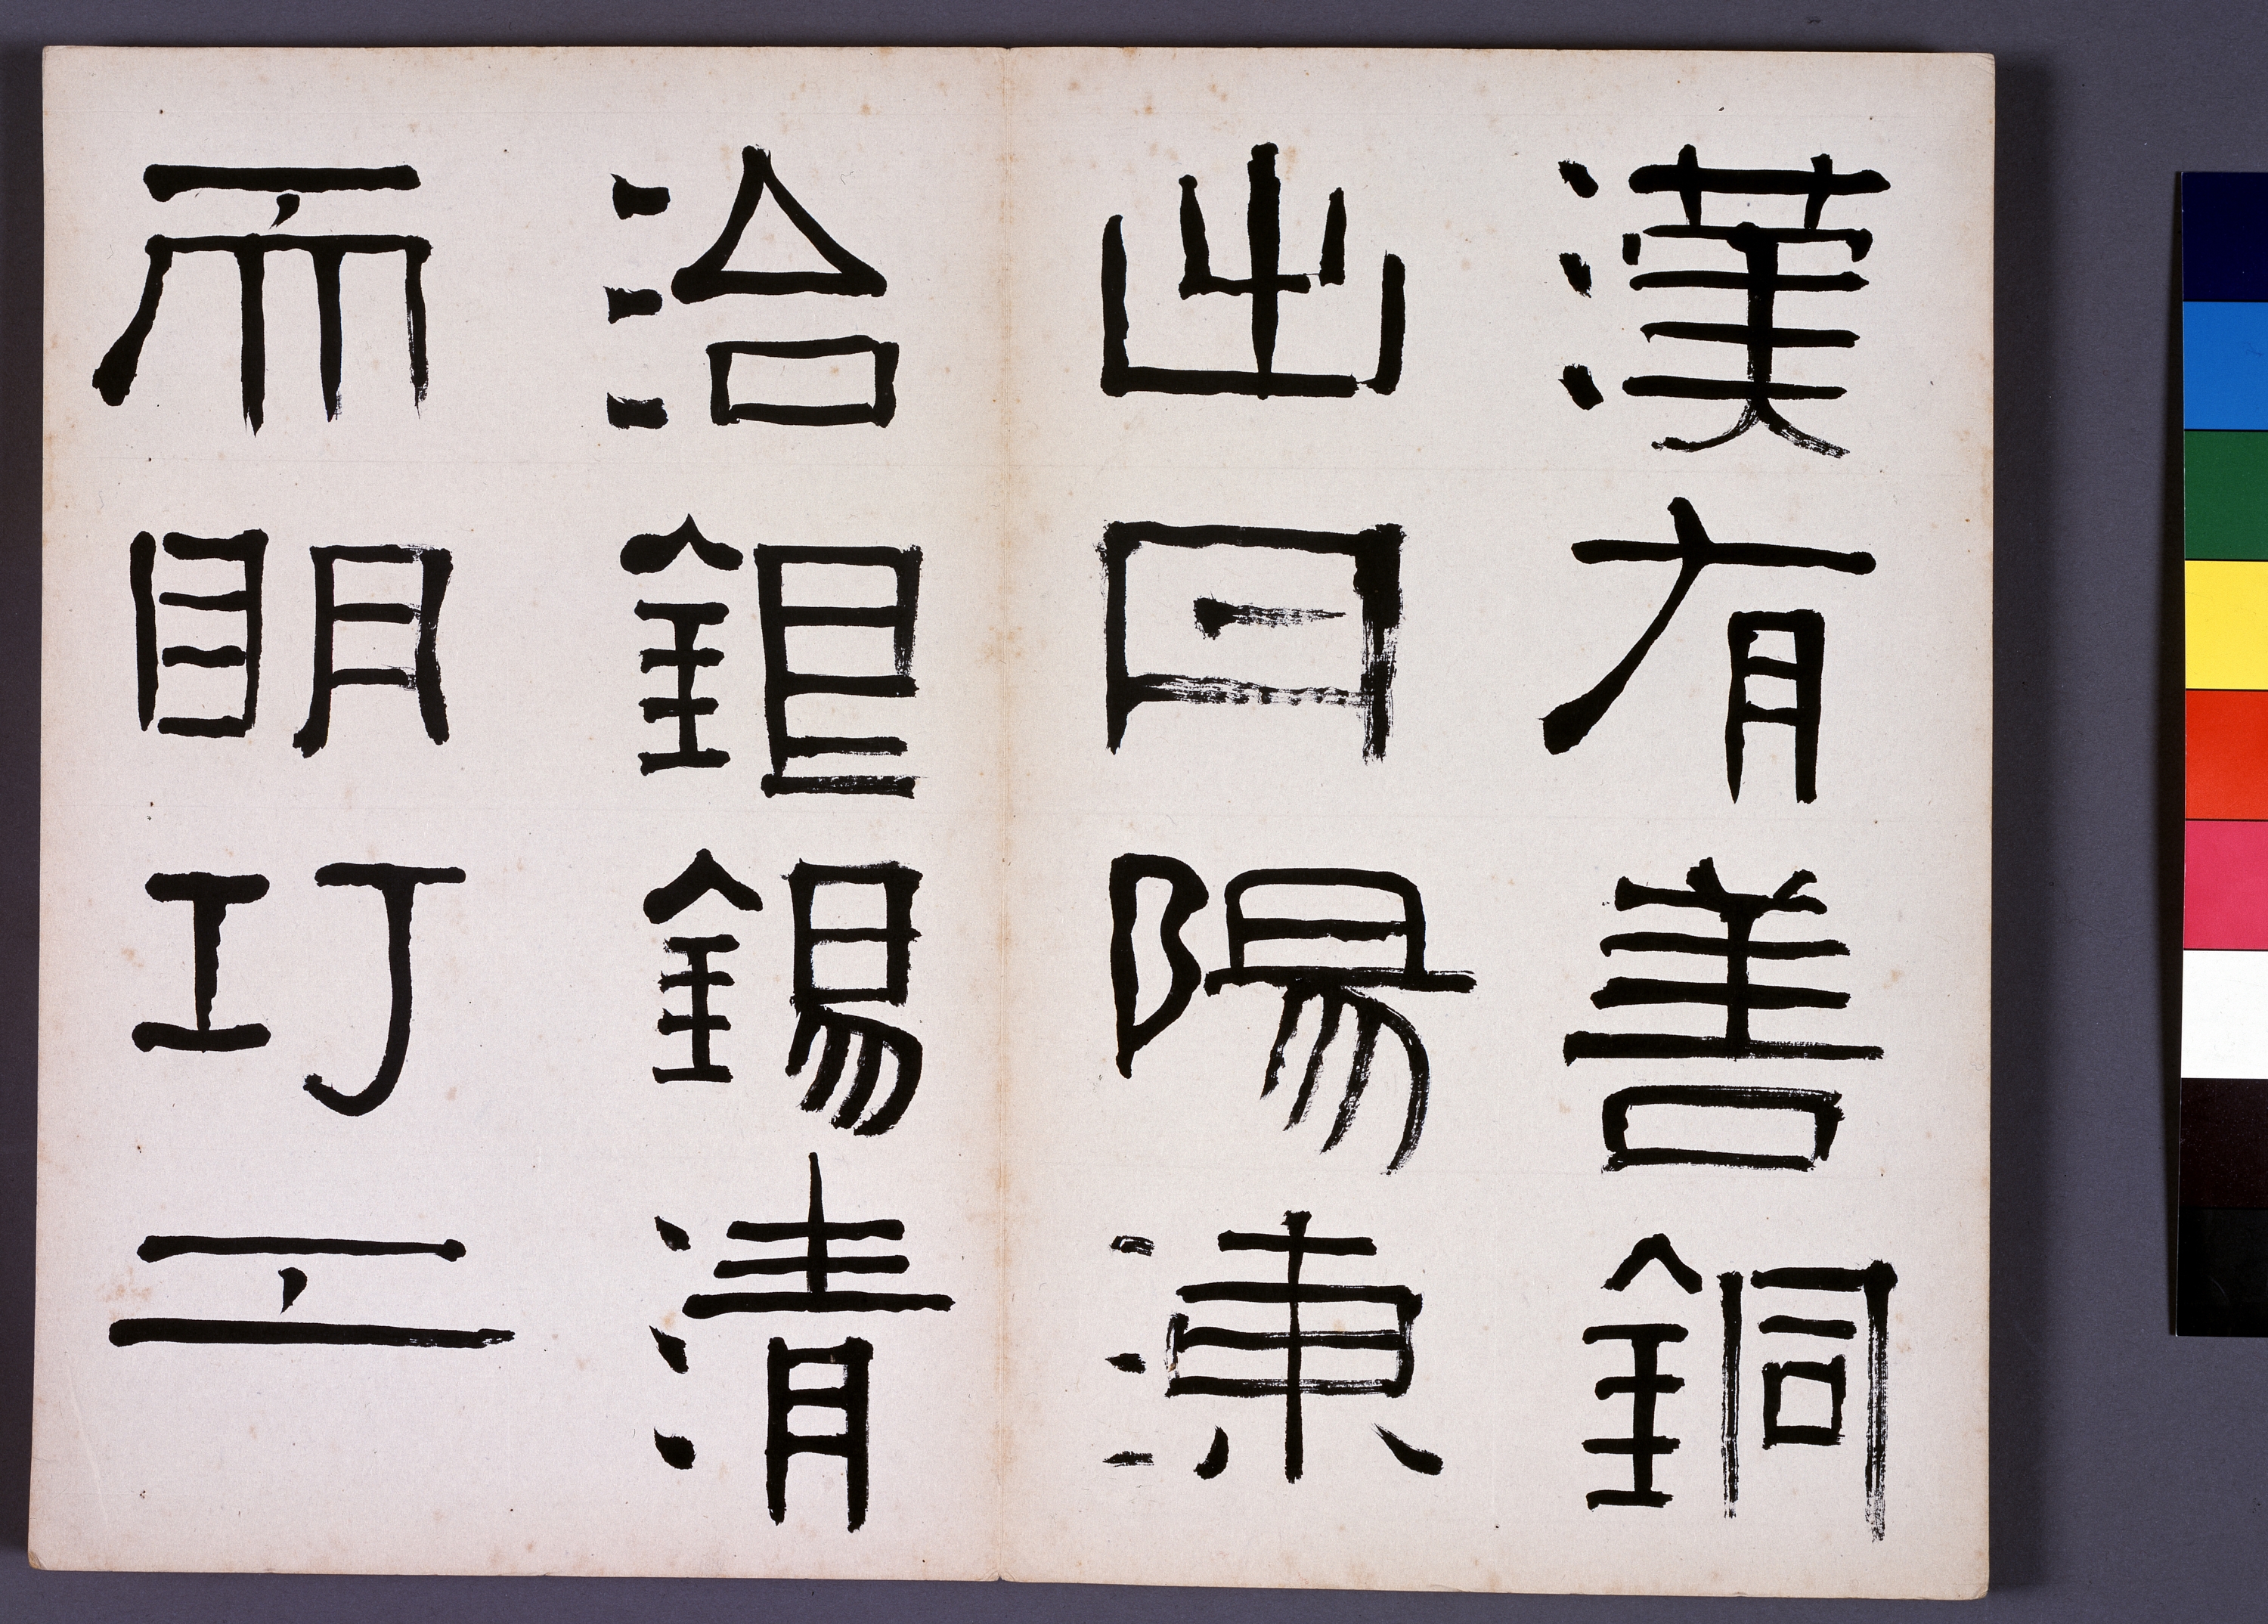 漢有善銅
出丹陽湅
治銀錫清
而明巧工